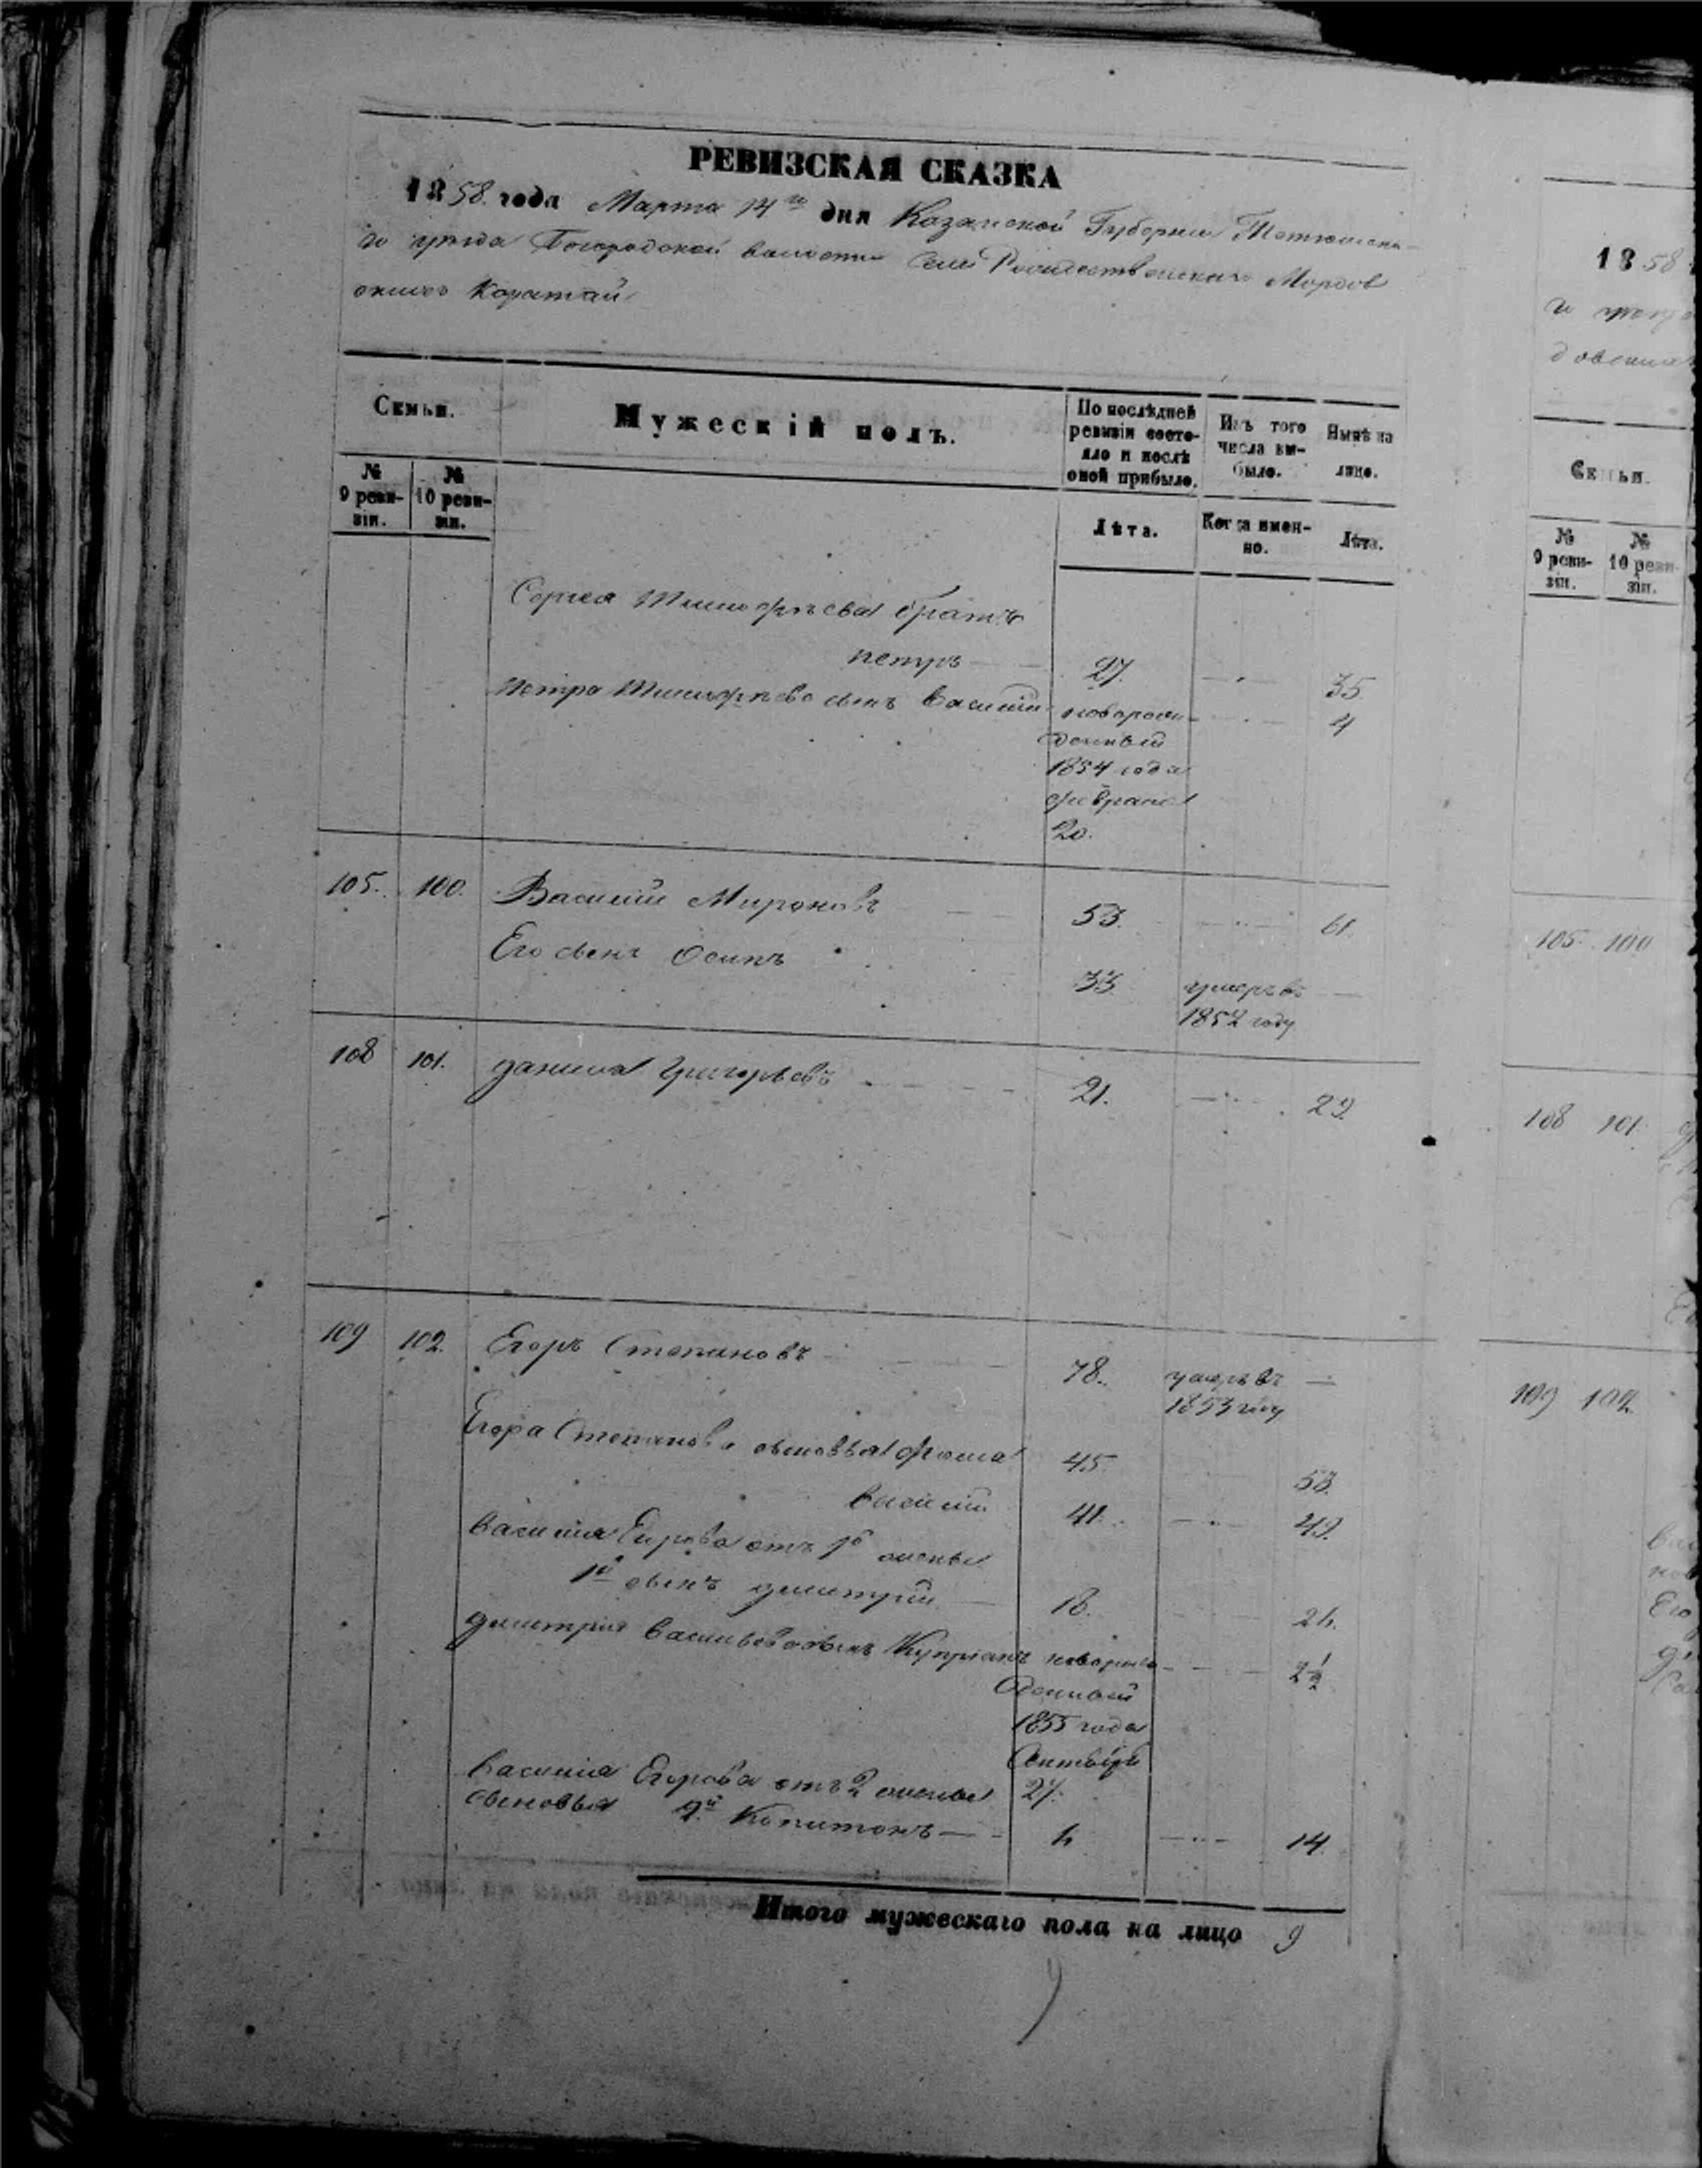 РЕВИЗСКАЯ СКАЗКА
1858 года Марта 14го дня Казанской Губернии Тетюшска-
го уезда Богородской волости Села Рождественскаго Мордов
скихъ Каратай
Семьи.
Мужескій полъ.
По послѣдней ревизіи состояло и послѣ оной прибыло.
Изъ того числа выбыло.
Нынѣ на лицо.
№ 9 ревизіи.
№ 10 ревизіи.
Лѣта.
Когда именно.
Лѣта.
Сергея Тимофѣева братъ
петръ 27. 35
петра Тимофѣева сынъ василий новорож- 4
денный
1854 года
февраля
20.
105. 100. Василий Мироновъ 53. 61.
Его сынъ Осипъ 33 умеръ въ
1852 году
108 101. данила Григорьевъ 21. 29.
109 102. Егоръ Степановъ 78. умеръ въ
1853 году
Егора Степанова сыновья фома 45. 53.
василий 41. 49.
василия Егорова отъ 1й жены
1й сынъ дмитрий 18. 26.
дмитрия васильева сынъ Куприанъ новорож- 2½
денный
1855 года
Сентября
василия Егорова отъ 2 жены 27.
сыновья 2й Капитонъ 6 14.
Итого мужескаго пола на лицо 9
1858
Семьи.
№ 9 ревизіи.
№ 10 ревизіи.
105. 100
108 101.
109 102.